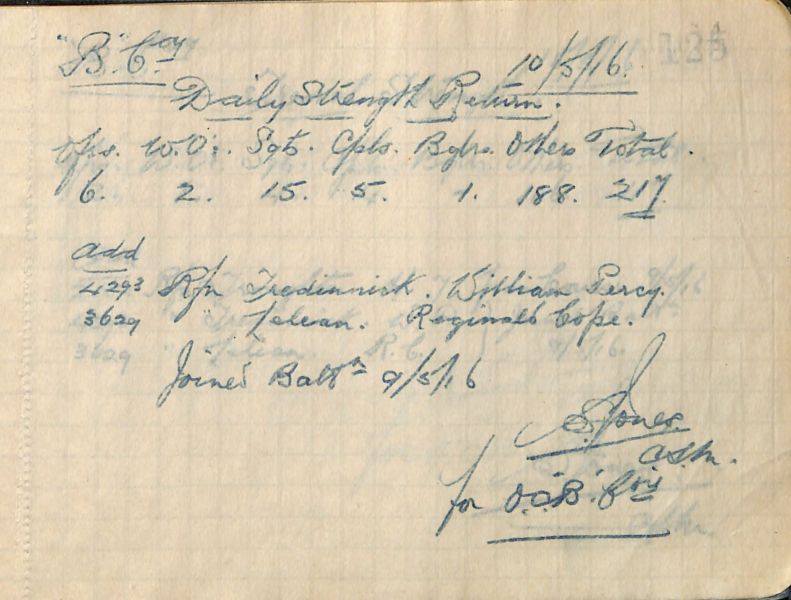 "B" Coy 10/5/16. 125
Daily Strength Return.
Offs. W.O's. Sgts. Cpls. Bglrs. Others Total.
6. 2. 15. 5. 1. 188. 217
Add
4293 Rfn Tredinnick. William Percy.
3629 " Jelean. Reginald Cope.
Joined Battn 9/5/16
S. Jones.
C.S.M.
for O.C. "B" Coy